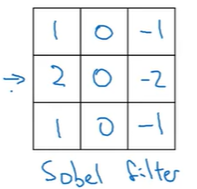 1 0 -1
2 0 -2
1 0 -1
Sobel filter